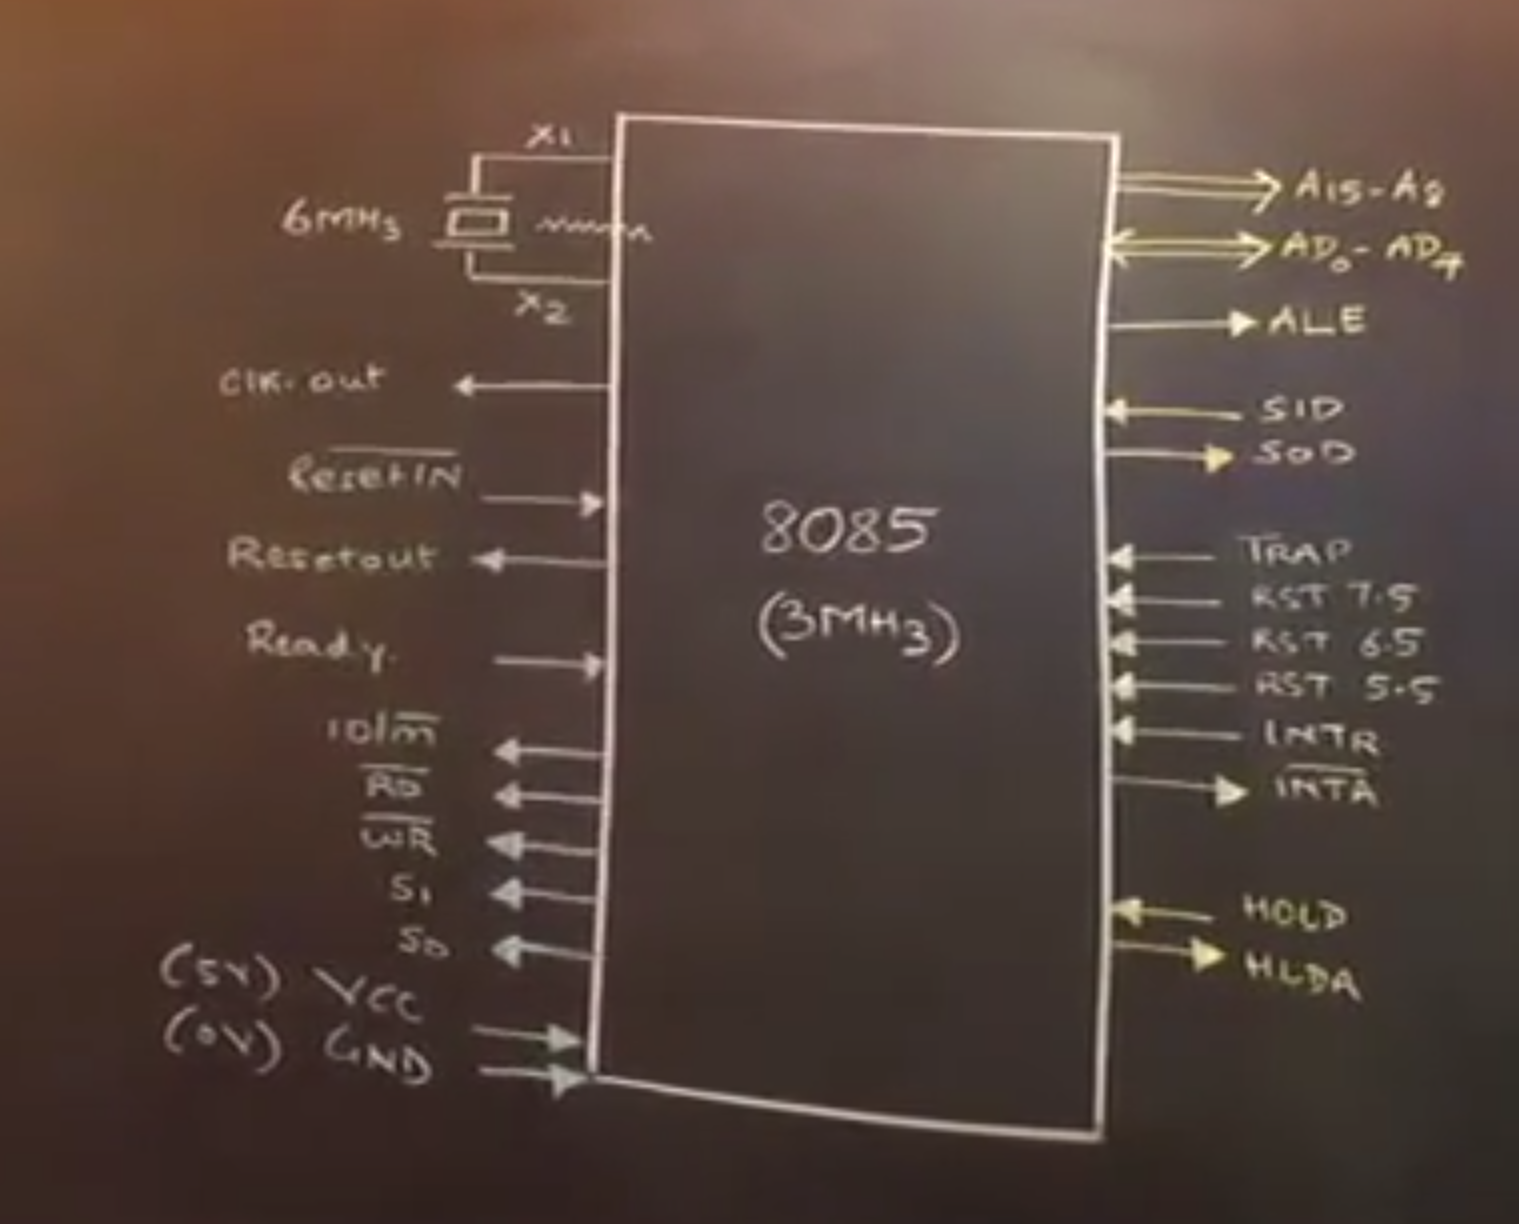 X1
6MHz
X2
CLK. out
R̅e̅s̅e̅t̅ ̅I̅N̅
Resetout
Ready.
IO/M̅
R̅D̅
W̅R̅
S1
S0
(5V) VCC
(0V) GND
8085
(3MHz)
A15-A8
AD0-AD7
ALE
SID
SOD
TRAP
RST 7.5
RST 6.5
RST 5.5
INTR
I̅N̅T̅A̅
HOLD
HLDA